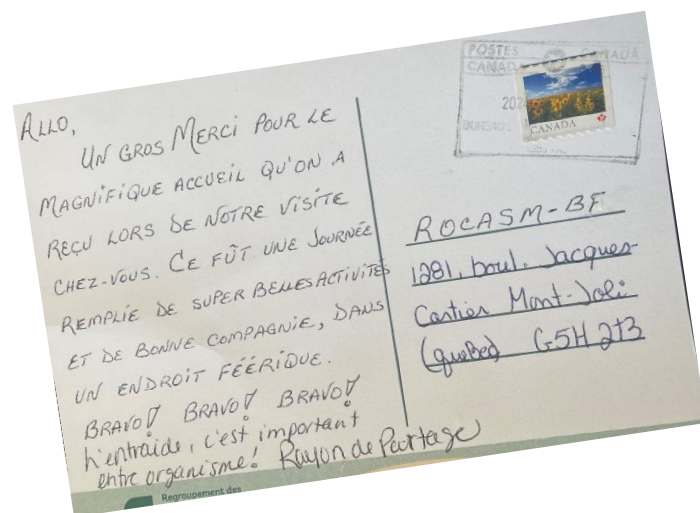 ALLO,
UN GROS MERCI POUR LE
MAGNIFIQUE ACCUEIL QU'ON A
REÇU LORS DE NOTRE VISITE
CHEZ-VOUS. CE FÛT UNE JOURNÉE
REMPLIE DE SUPER BELLES ACTIVITÉS
ET DE BONNE COMPAGNIE, DANS
UN ENDROIT FÉÉRIQUE.
BRAVO! BRAVO! BRAVO!
L'entraide, c'est important
entre organisme! Rayon de Partage
Regroupement des
POSTES CANADA
CANADA
CANADA
P
ROCASM-BF
1281, boul. Jacques-
Cartier Mont-Joli
(Québec) G5H 2T3